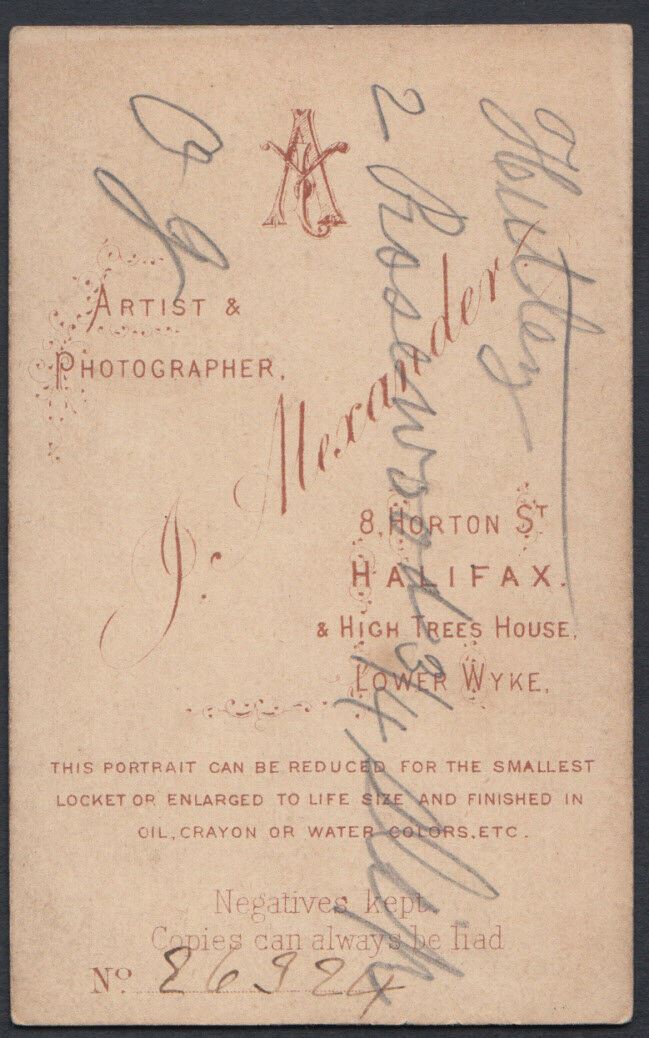 ARTIST &
PHOTOGRAPHER,
J. Alexander
8, HORTON ST
HALIFAX.
& HIGH TREES HOUSE,
LOWER WYKE.
THIS PORTRAIT CAN BE REDUCED FOR THE SMALLEST
LOCKET OR ENLARGED TO LIFE SIZE AND FINISHED IN
OIL, CRAYON OR WATER COLORS, ETC.
Negatives kept.
Copies can always be had
No. 26924
Hutley
2 Rosewood 3/4